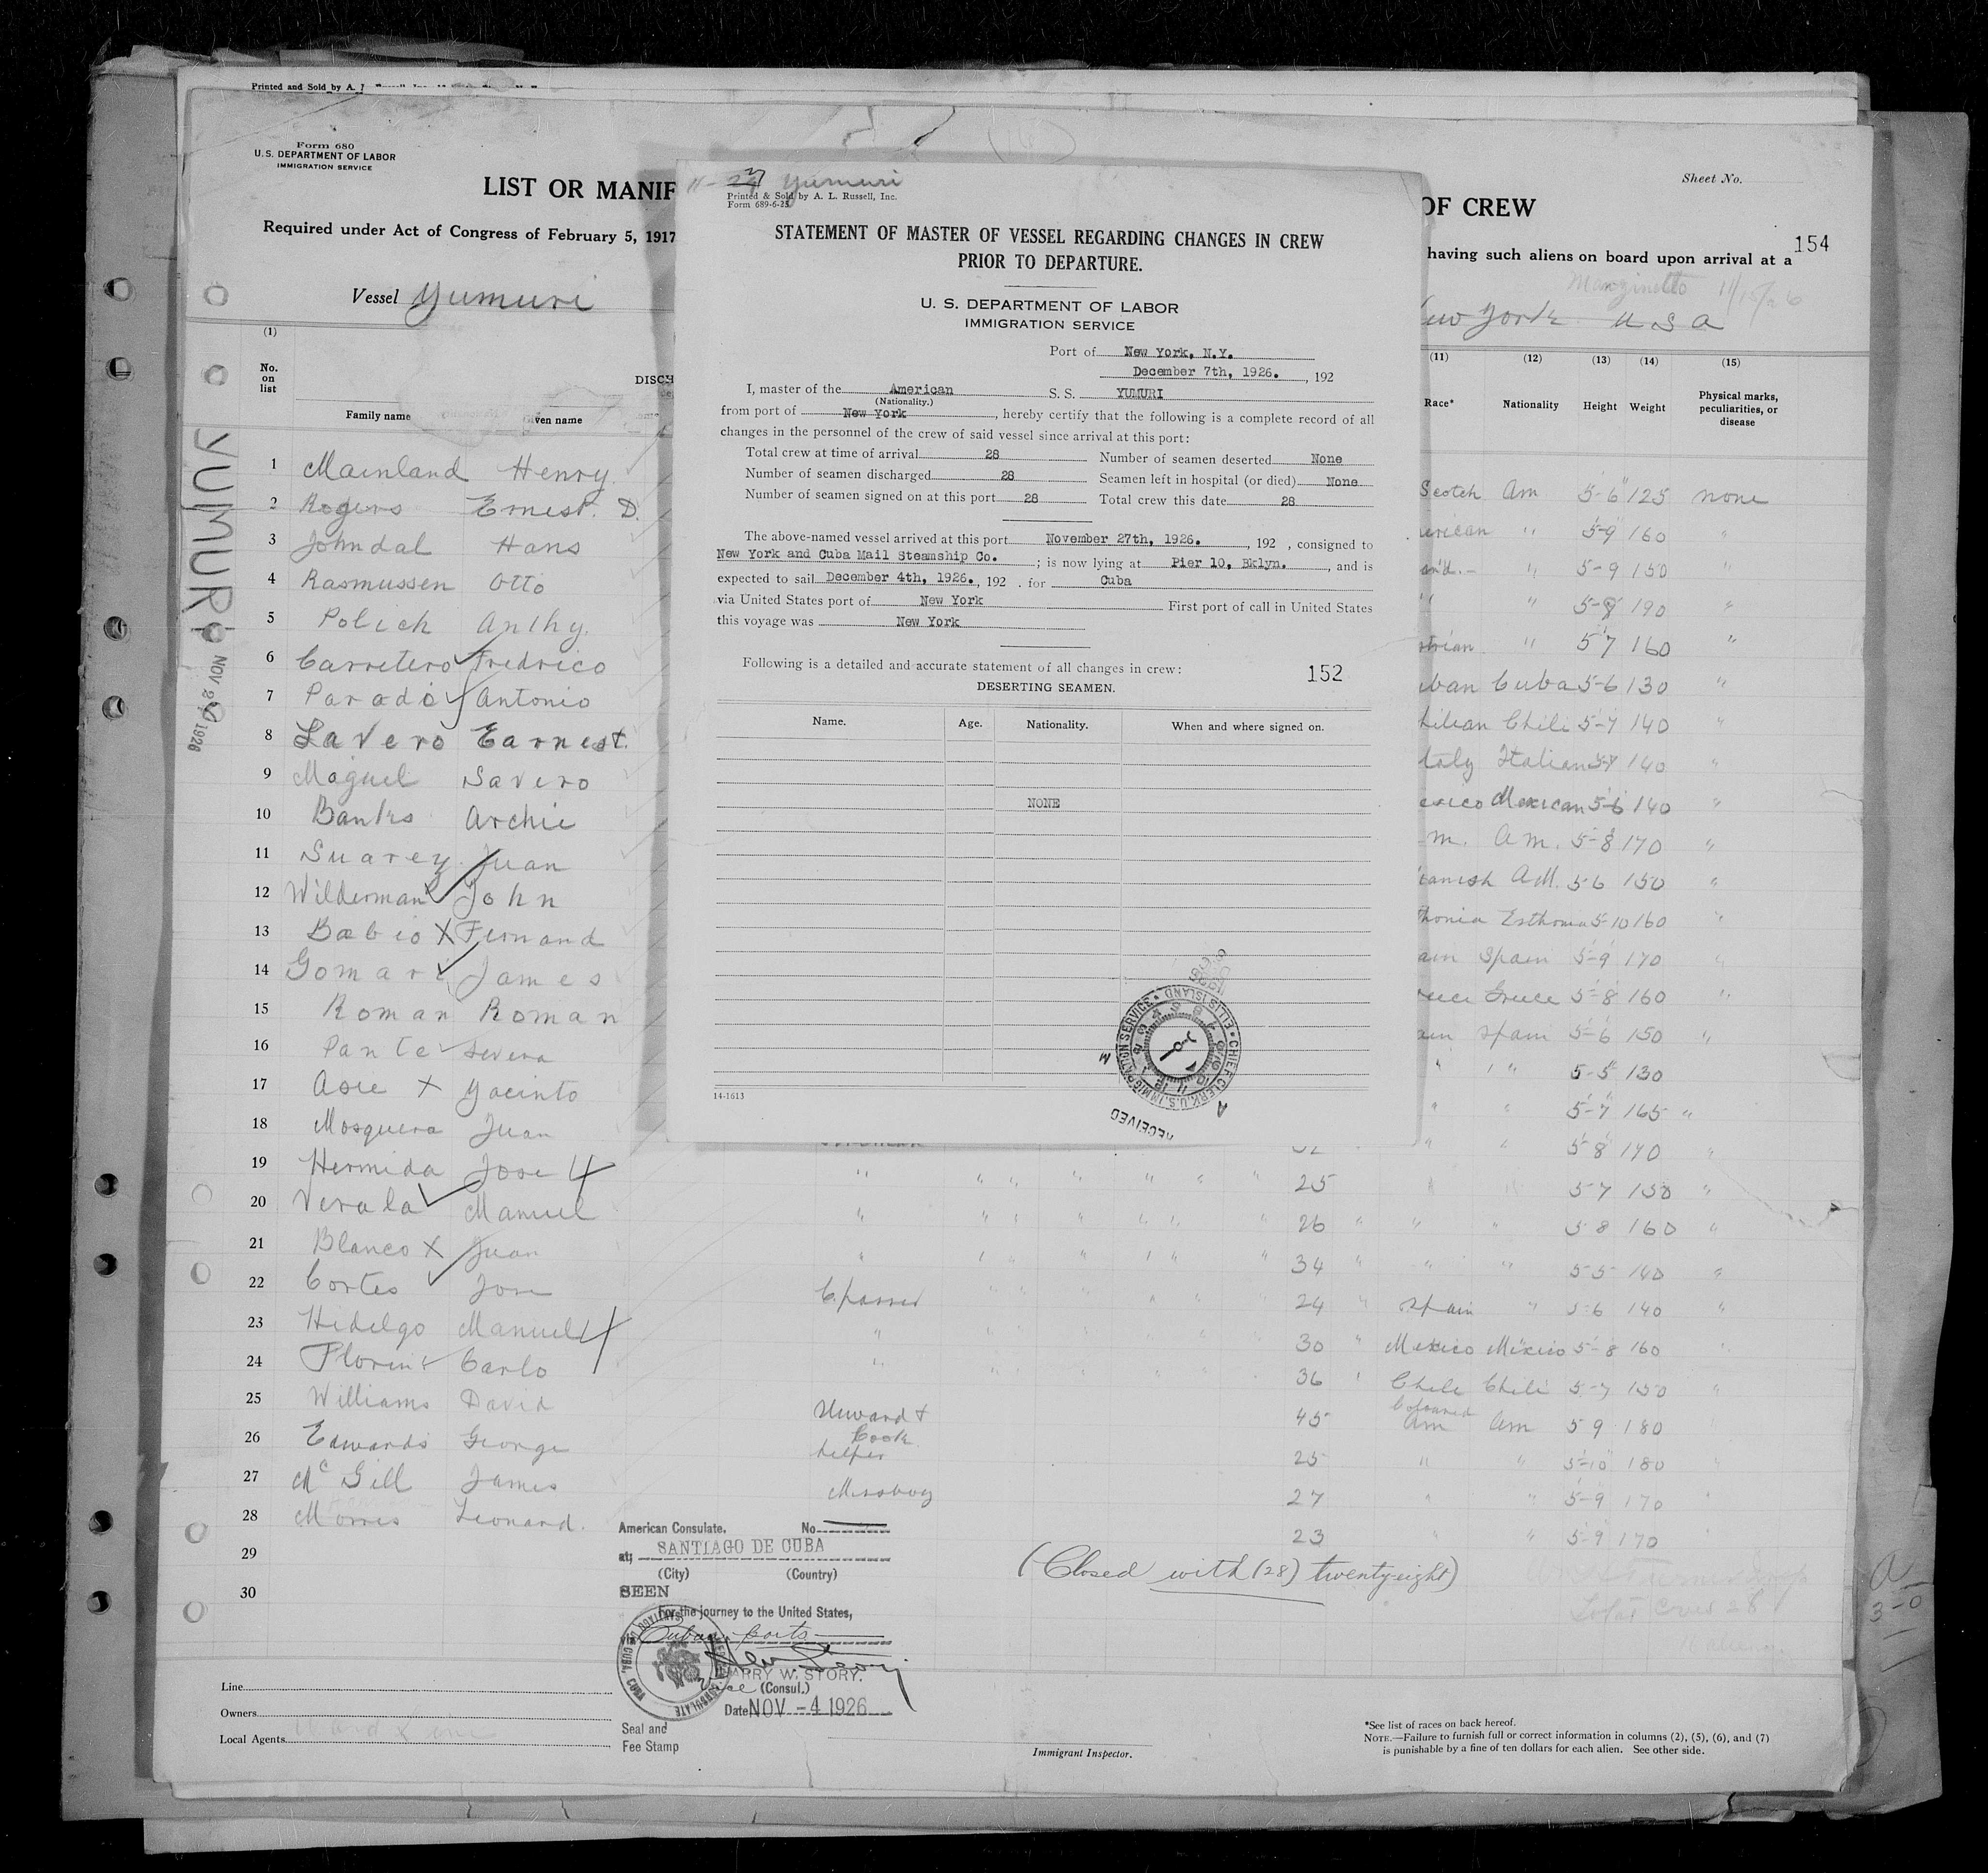 Printed and Sold by A.
Form 680
U. S. DEPARTMENT OF LABOR
IMMIGRATION SERVICE
LIST OR MANIF
OF CREW
Sheet No.
Required under Act of Congress of February 5, 1917
having such aliens on board upon arrival at a
154
Vessel Yumuri
11/15/26
New York U S A
(1)
No. on list
DISCH
Family name
Given name
(11) (12) (13) (14) (15)
Race* Nationality Height Weight Physical marks, peculiarities, or disease
YUMURI
NOV 2 1926
1 Mainland Henry
2 Rogers Ernest. D.
3 Johndal Hans
4 Rasmussen Otto
5 Polich Anthy.
6 Carretero Fredrico
7 Parado Antonio
8 Lavero Earnest.
9 Maguel Savero
10 Banks Archie
11 Suarey Juan
12 Wilderman John
13 Babio X Fernand
14 Gomari James
15 Roman Roman
16 Pante Severa
17 Asie X Yacinto
18 Mosquera Juan
19 Hermida Jose
20 Verala Manuel
21 Blanco X Juan
22 Cortes Jose
23 Hidelgo Manuel
24 Florin Carlo
25 Williams David
26 Edwards George
27 McGill James
28 Morris Leonard.
29
30
Scotch Am 5-6 125 none
erican " 5-9 160 "
and.- " 5-9 150 "
" " 5-8 190 "
strian " 5 7 160 "
uban Cuba 5-6 130 "
hilian Chili 5-7 140 "
taly Italian 5-7 140 "
exico Mexican 5-6 140 "
m. Am. 5-8 170 "
panish AM. 5 6 150 "
thonia Esthonia 5-10 160 "
ain Spain 5-9 170 "
reece Greece 5-8 160 "
ain Spain 5-6 150 "
" " 5-5 130
" " 5-7 165 "
" " 5-8 170 "
25 " " 5-7 150 "
26 " " " 5 8 160 "
34 " " " 5 5 140 "
C.passer 24 " Spain " 5-6 140 "
" 30 " Mexico Mexico 5-8 160 "
" 36 " Chile Chili 5-7 150 "
Steward & Cook 45 Coloured Am Am 5 9 180
helper 25 " " 5-10 180
Messboy 27 " " 5-9 170
23 " " 5-9 170
(Closed with (28) twenty-eight)
Total Crew 28
American Consulate. No
at; SANTIAGO DE CUBA
(City) (Country)
SEEN
For the journey to the United States,
via Cuban ports
HARRY W. STORY.
Vice (Consul.)
Date NOV -4 1926
Seal and
Fee Stamp
Line
Owners
Local Agents Ward Line
Immigrant Inspector.
*See list of races on back hereof.
NOTE.—Failure to furnish full or correct information in columns (2), (5), (6), and (7)
is punishable by a fine of ten dollars for each alien. See other side.
11-27 Yumuri
Printed & Sold by A. L. Russell, Inc.
Form 689-6-25
STATEMENT OF MASTER OF VESSEL REGARDING CHANGES IN CREW
PRIOR TO DEPARTURE.
U. S. DEPARTMENT OF LABOR
IMMIGRATION SERVICE
Port of New York, N.Y.
December 7th, 1926. , 192
I, master of the American S. S. YUMURI
(Nationality.)
from port of New York , hereby certify that the following is a complete record of all
changes in the personnel of the crew of said vessel since arrival at this port:
Total crew at time of arrival 28 Number of seamen deserted None
Number of seamen discharged 28 Seamen left in hospital (or died) None
Number of seamen signed on at this port 28 Total crew this date 28
The above-named vessel arrived at this port November 27th, 1926. , 192 , consigned to
New York and Cuba Mail Steamship Co. ; is now lying at Pier 10, Bklyn. , and is
expected to sail December 4th, 1926. , 192 . for Cuba
via United States port of New York First port of call in United States
this voyage was New York
Following is a detailed and accurate statement of all changes in crew:
152
DESERTING SEAMEN.
Name. Age. Nationality. When and where signed on.
NONE
CHIEF CLERK, U.S. IMMIGRATION SERVICE • ELLIS ISLAND
RECEIVED
14-1613